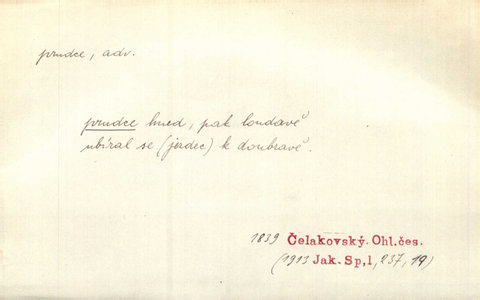 prudce, adv.
prudce hned, pak loudavě
ubíral se (jezdec) k doubravě.
1839 Čelakovský. Ohl.čes.
(1913 Jak. Sp,1, 237, 19)